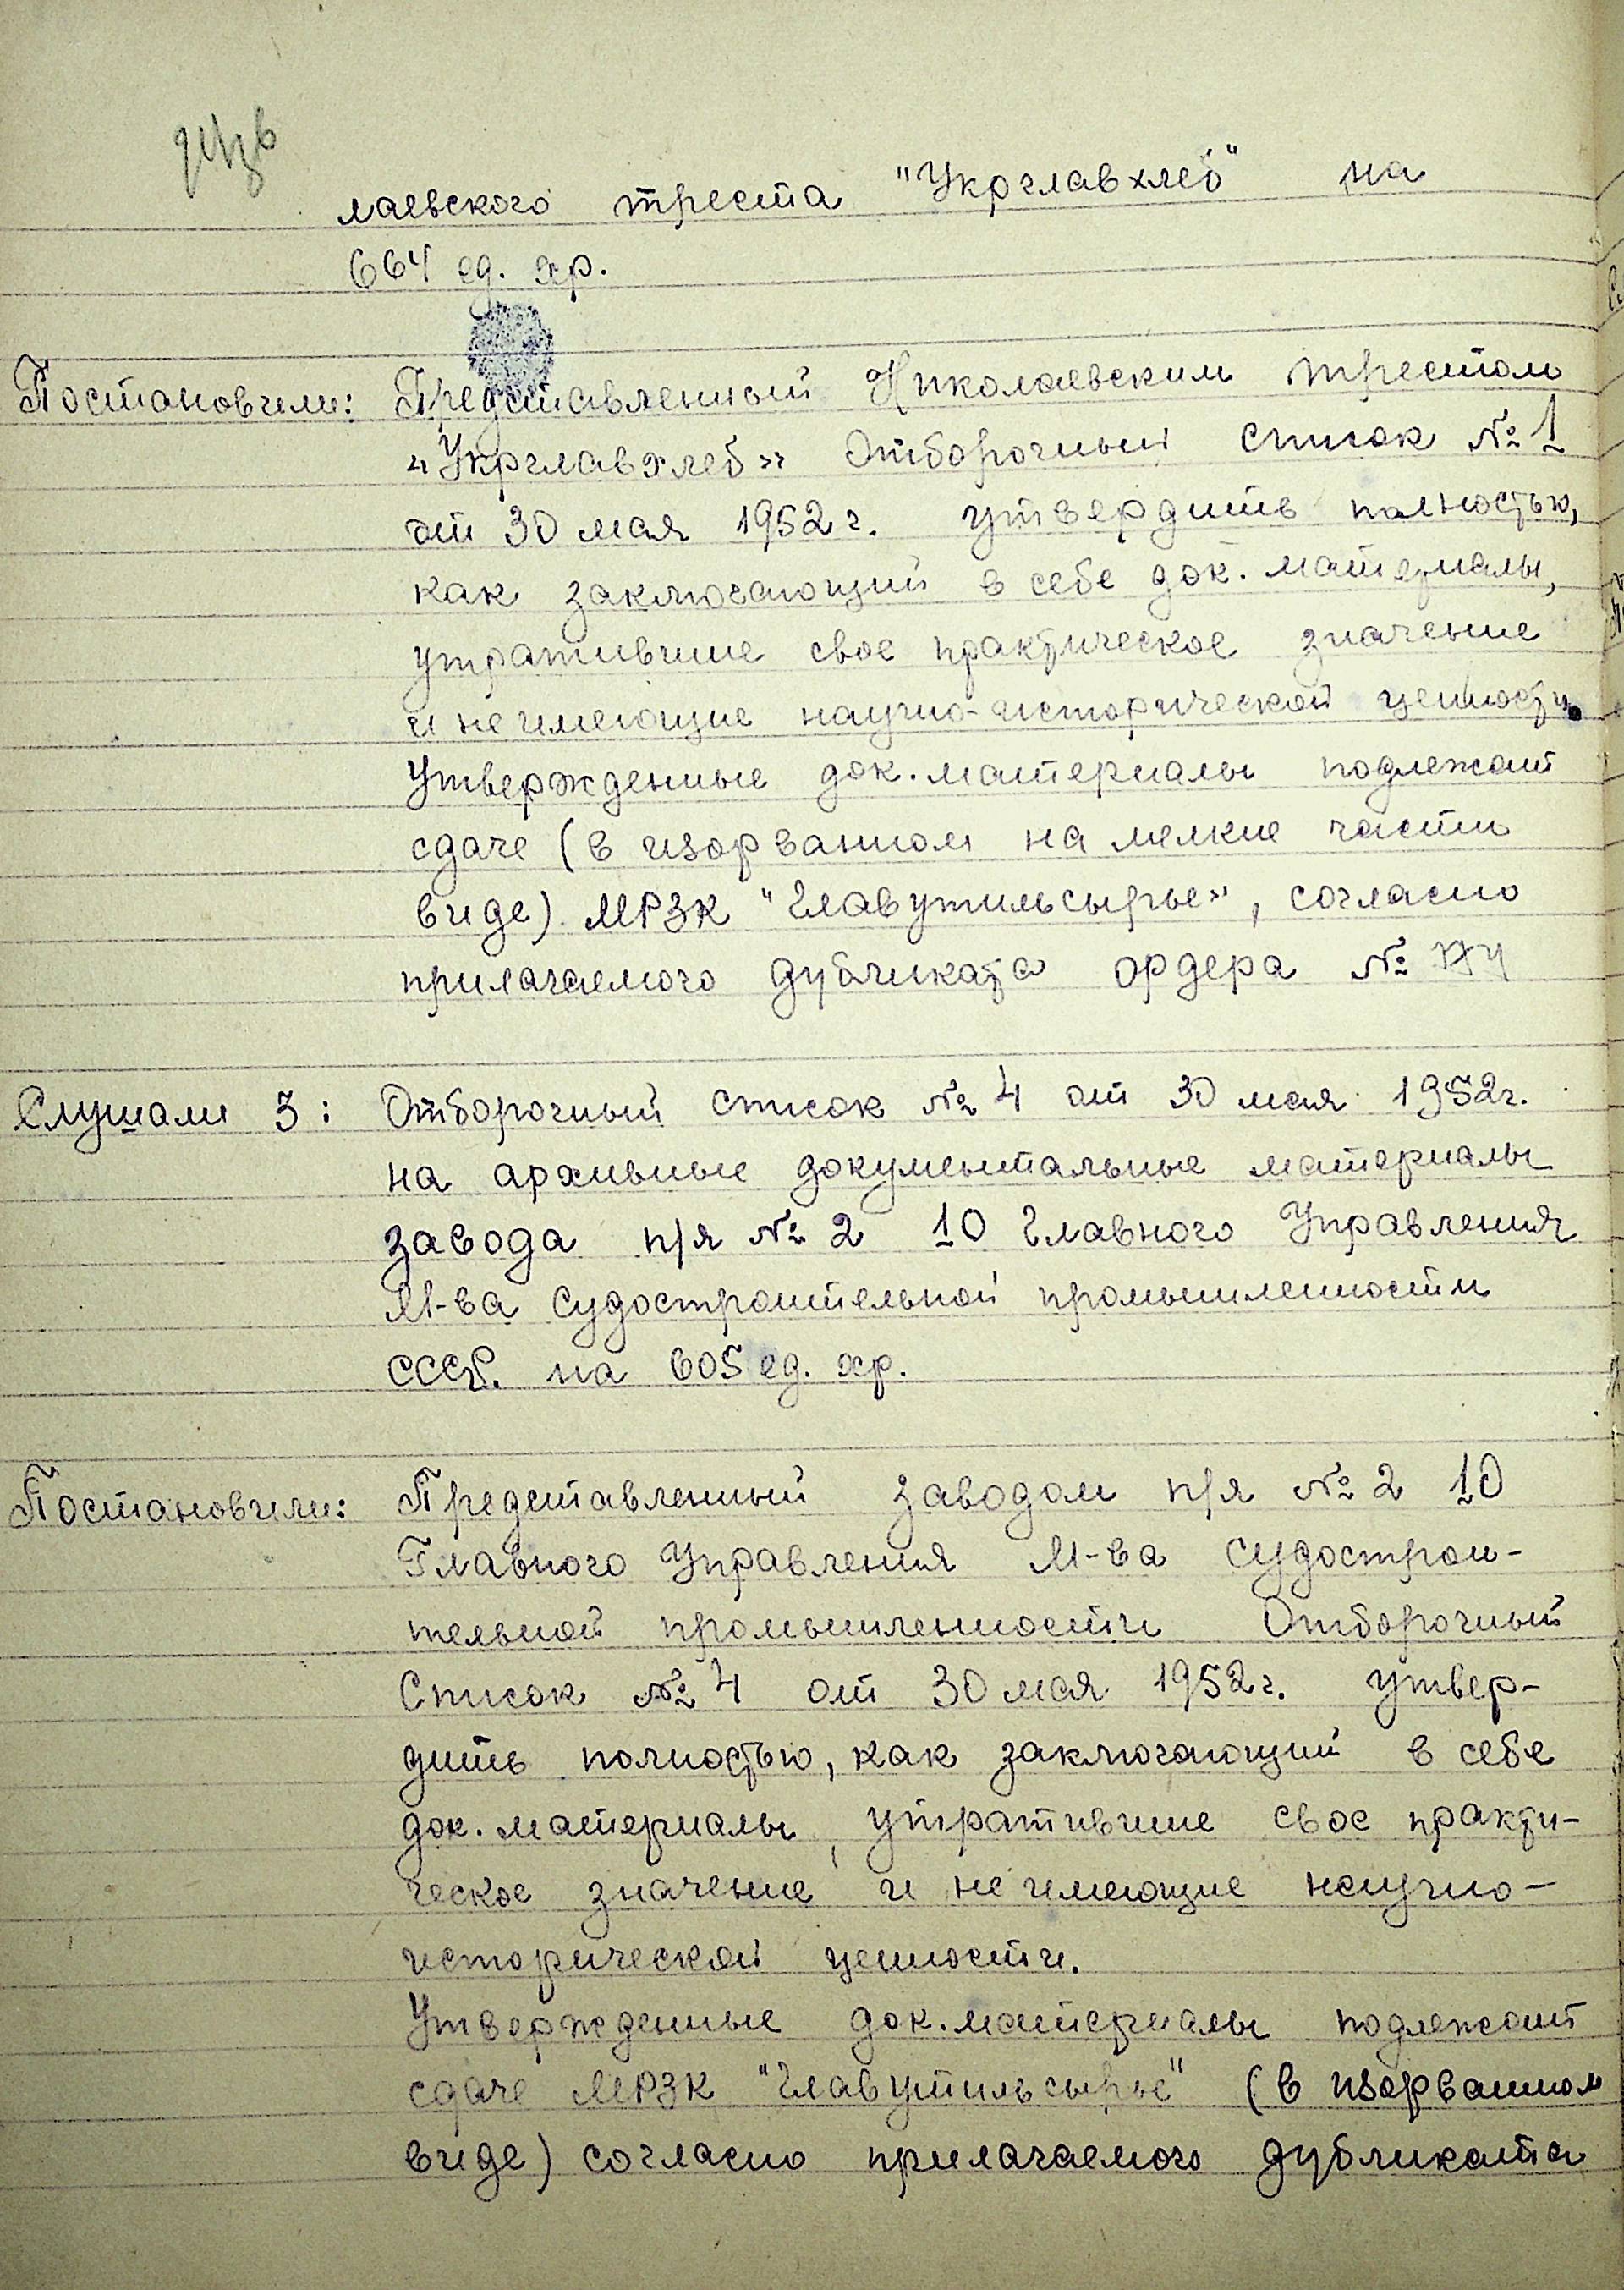 лаевского треста "Укрглавхлеб" на
664 ед. хр.
Постановили: Представленный Николаевским трестом
„Укрглавхлеб» Отборочный список № 1
от 30 мая 1952 г. утвердить полностью,
как заключающий в себе док. материалы,
утратившие свое практическое значение
и не имеющие научно-исторической ценности.
Утвержденные док. материалы подлежат
сдаче (в изорванном на мелкие части
виде) МРЗК "Главутильсырье», согласно
прилагаемого дубликата ордера №
Слушали 3: Отборочный список № 4 от 30 мая 1952г.
на архивные документальные материалы
завода п/я № 2 10 Главного Управления
М-ва судостроительной промышленности
СССР. на 605 ед. хр.
Постановили: Представленный заводом п/я № 2 10
Главного Управления М-ва судострои-
тельной промышленности Отборочный
Список № 4 от 30 мая 1952г. утвер-
дить полностью, как заключающий в себе
док. материалы, утратившие свое практи-
ческое значение и не имеющие научно-
исторической ценности.
Утвержденные док. материалы подлежат
сдаче МРЗК "Главутильсырье" (в изорванном
виде) согласно прилагаемого дубликата